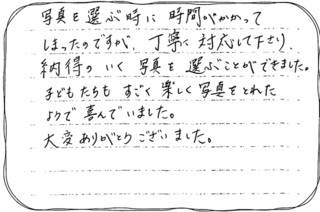 写真を選ぶ時に時間がかかって
しまったのですが、丁寧に対応して下さり、
納得のいく写真を選ぶことができました。
子どもたちもすごく楽しく写真をとれた
ようで喜んでいました。
大変ありがとうございました。